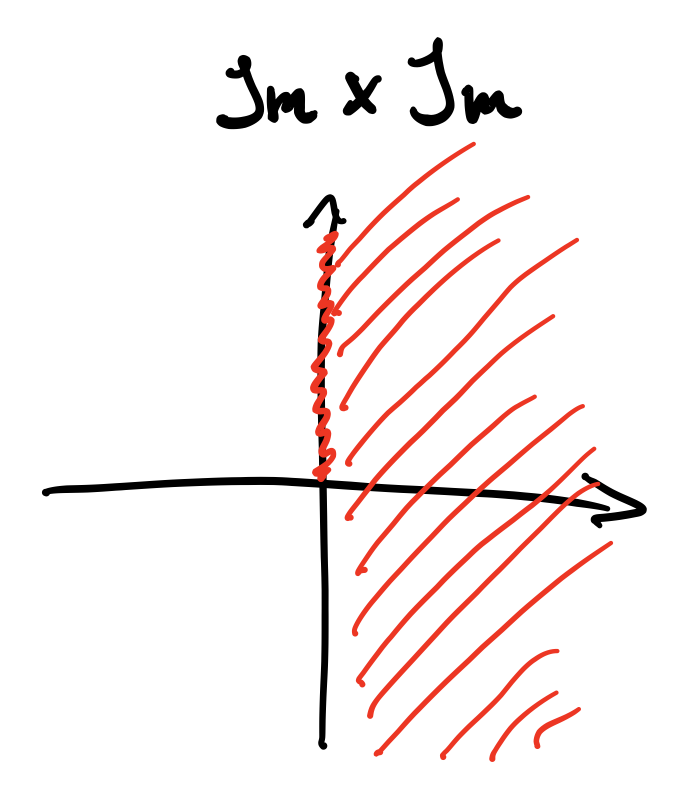 Im x Im